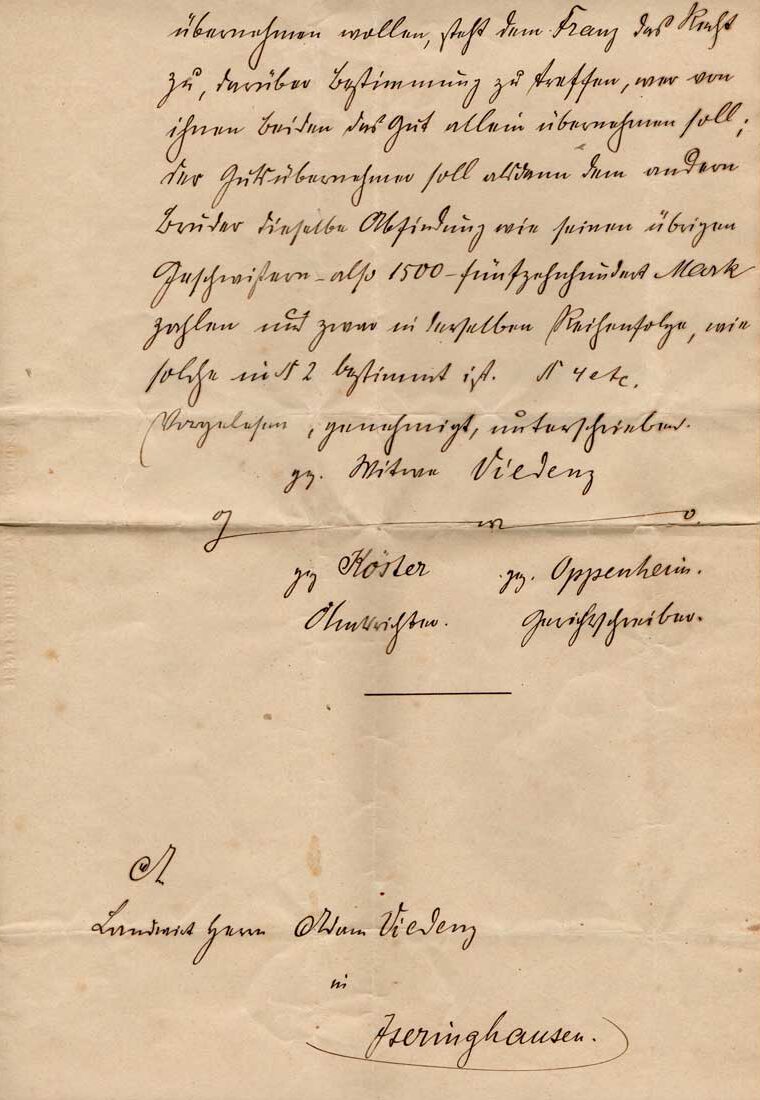 übernehmen wollen, steht dem Franz das Recht
zu, darüber Bestimmung zu treffen, wer von
ihnen beiden das Gut allein übernehmen soll;
der Gutsübernehmer soll alsdann dem andern
Bruder dieselbe Abfindung wie seinen übrigen
Geschwistern - also 1500 - fünfzehnhundert Mark
zahlen und zwar in derselben Reihenfolge, wie
solche in N 2 bestimmt ist. N 4 etc.
Vorgelesen, genehmigt, unterschrieben.
gez. Witwe Viedenz
g w o.
gez Köster gez. Oppenheim.
Amtsrichter. Gerichtsschreiber.
Landwirt Herrn Adam Viedenz
in
Iseringhausen.